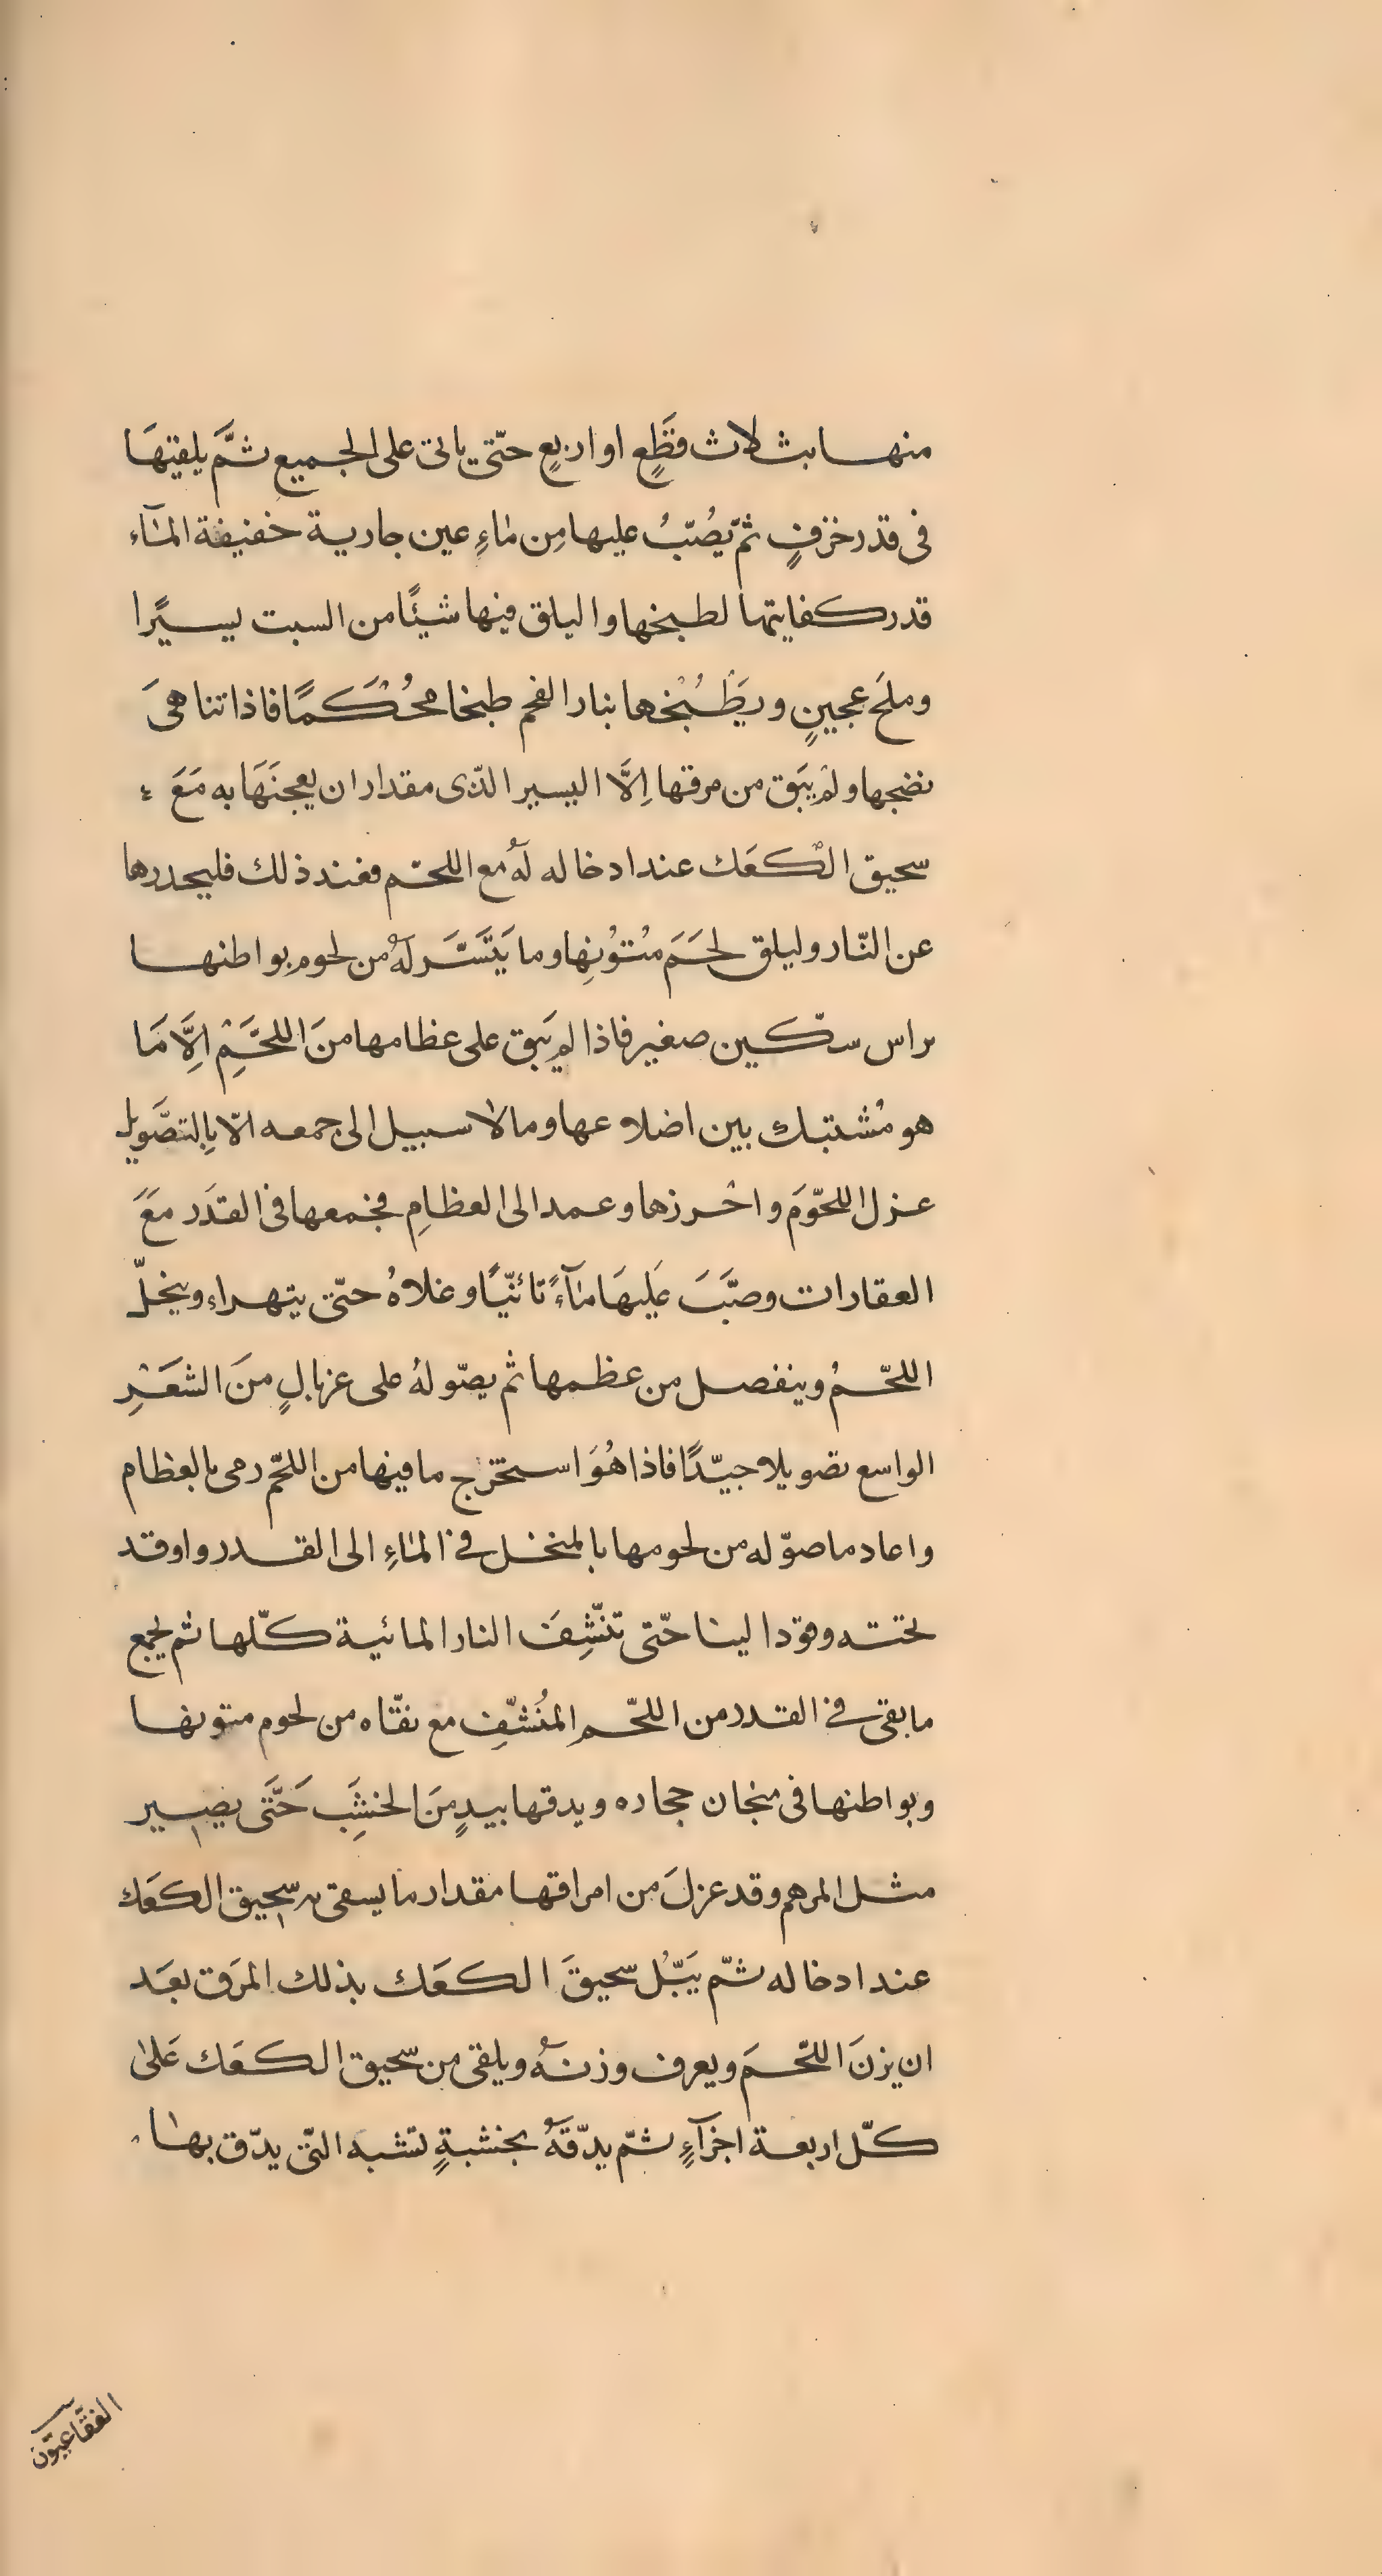 منها بثلاث قطَعٍ او اربعٍ حتّى ياتى على الجميع ثمَّ يلقيهَا
فى قدر خزفٍ ثمّ يَصُبّبُ عليها مِن مٰاءٍ عين جارية خفيفة المآء
قدر كفايتها لطبخها واليلق فيها شيئًا من السبت يسيرًا
وملحَ عجينٍ ويَطْبُخها بنار الفحم طبخا محُكَمًا فاذا تناهىَ
نضجها ولمْ يبَق من مرقها اِلَّا اليسير الذّى مقدار ان يعجنَهَا به مَعَ
سحيق الكعَك عند ادخاله لَهُ مع اللحّم فعند ذلك فليحدرها
عن النّار وليلق لحَمَ مُتوُنِها وما يَتَسَّر لَهُ من لحومِ بواطنها
براس سكّين صغير فاذا لم يَبق على عظامها منَ اللحَّمِ اِلَّا مَا
هو مُشتبك بين اضلاعها وما لا سبيل الى جمعه الّا بِالتصَّويل
عزل اللحّومَ واحْرزها وعمد الى العظامِ فجمعها فى القدَر مَعَ
العقارات وصبَّبَ عَليهَا مآءً ثانيًّا وغلاهُ حتّى يتهراء وينحلّ
اللحّمُ وينفصل من عظمها ثم يصّولهُ على غربالٍ منَ الشعَرِ
الواسع تصويلا جيّدًا فاذا هُوَ استخرج ما فيها من اللحّم رمى بالعظام
واعاد ما صوّله من لحومها بالمنخل فى المٰاءِ الى القدر واوقد
تحته وقودا لينا حتّى تنّشِفَ النار المائية كلّها ثم يجمع
ما بقى فى القدر من اللحّم المُنشّفِ مع نقّاه من لحوم متونها
وبواطنها فى منجان حجاره ويدقها بيدٍ منَ الخشِب حَتَّى يصير
مثل المرهم وقد عزلَ من امراقها مقدار ما يسقى به سحيق الكعَك
عند ادخاله ثمّ يَبّلُ سحيقَ الكعَك بذلك المرَق بعَد
ان يزنَ اللحّمَ ويعرف وزنهُ ويلقى من سحيق الكعَك عَلىٰ
كلّ اربعة اجزآءٍ ثمّ يدّقهُ بخشبةٍ تشبه التّى يدّق بها
الفقّاعيّون